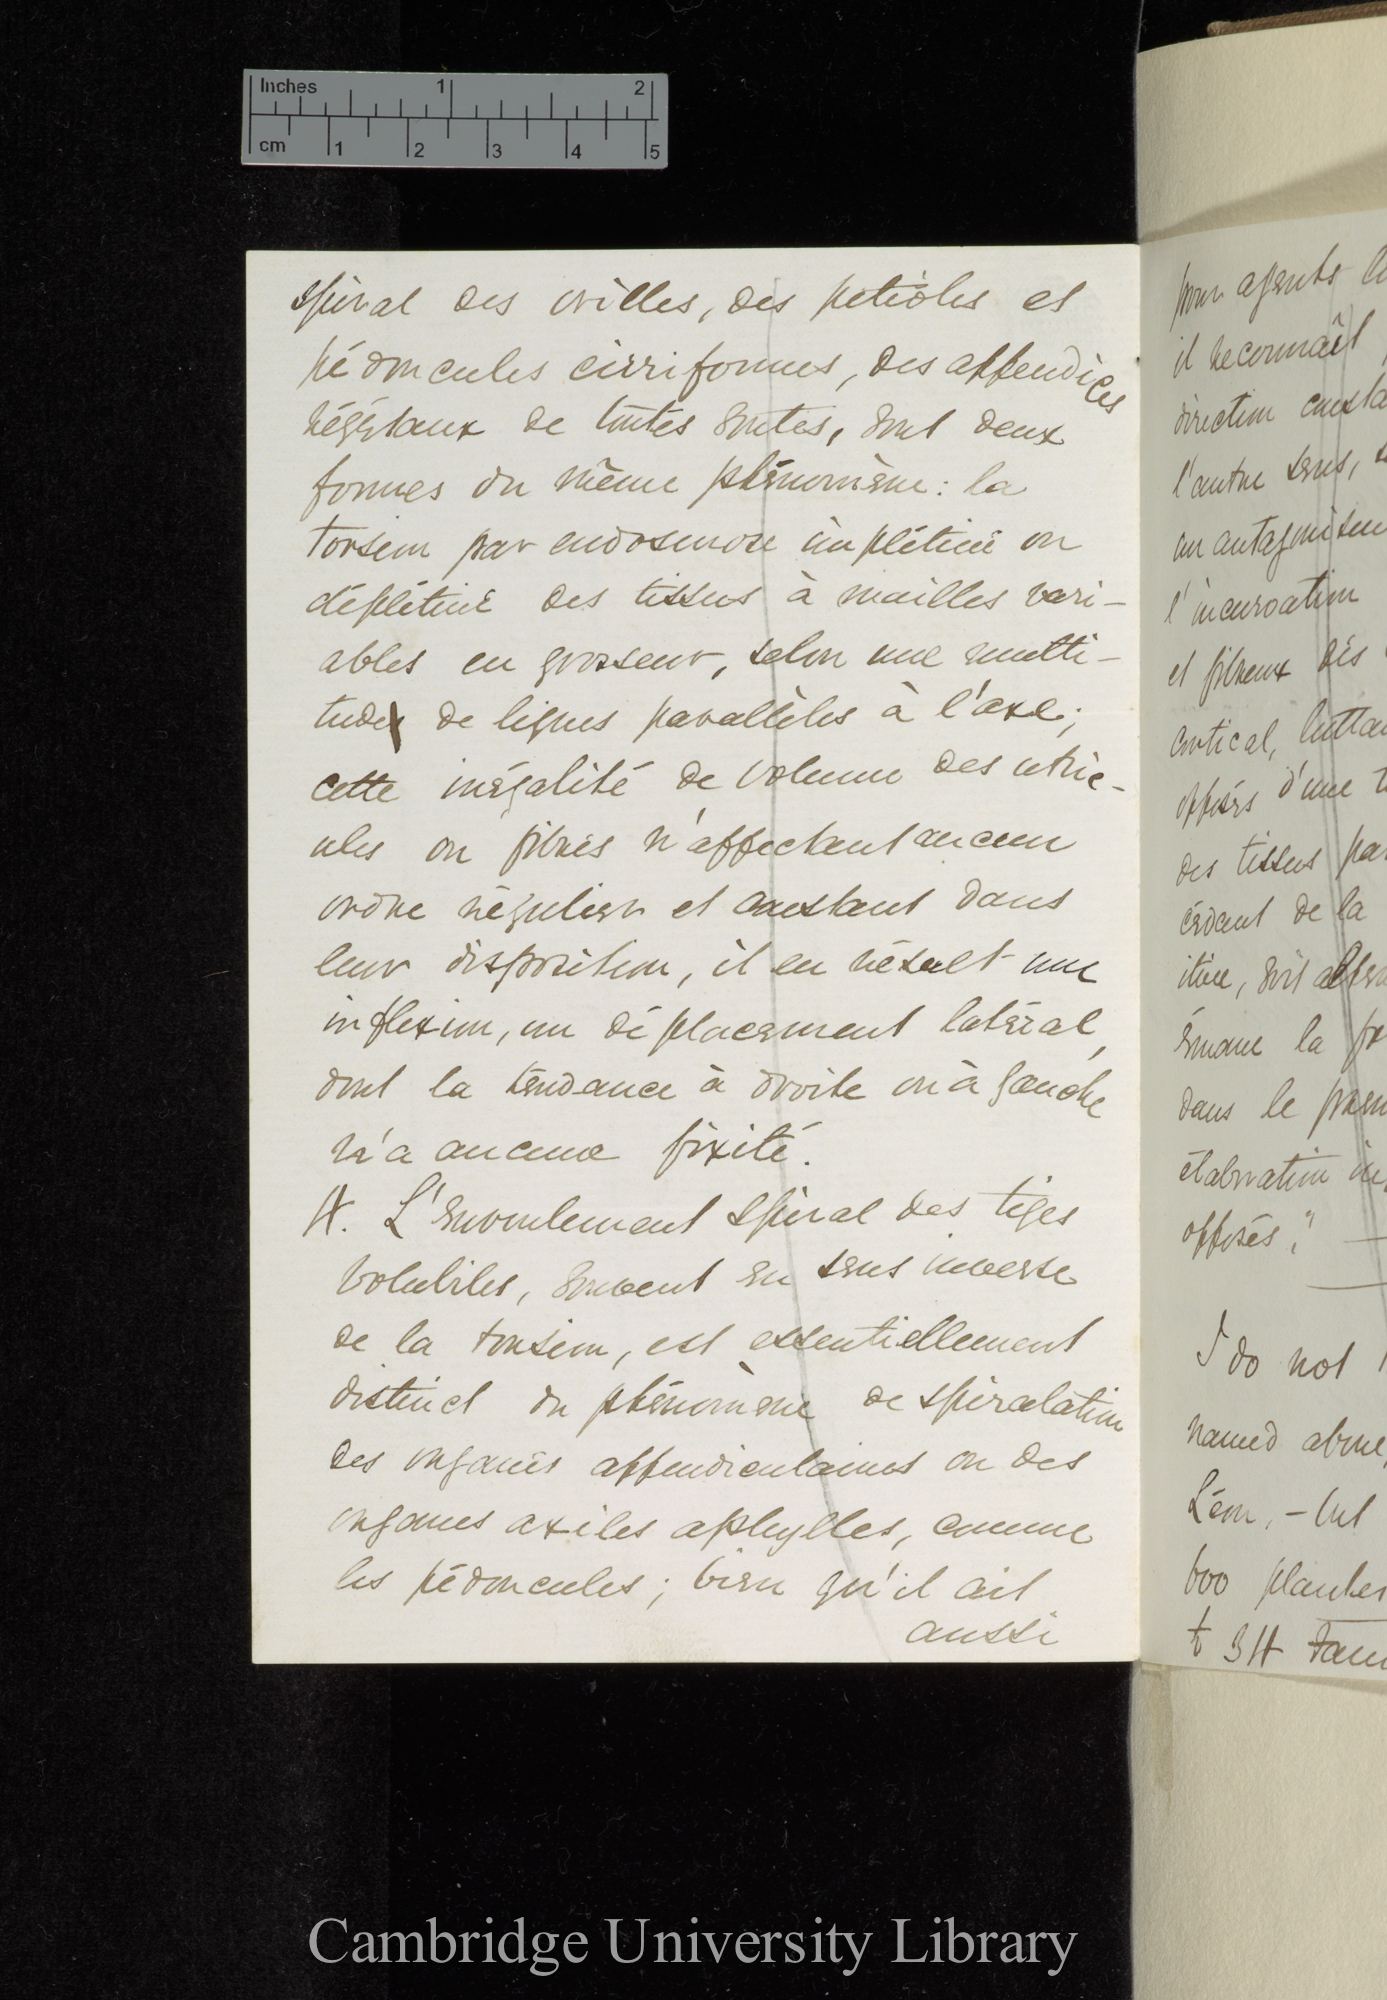 Inches 1 2
cm 1 2 3 4 5
spiral des vrilles, des petioles et
pédoncules cirriformes, des appendices
végétaux de toutes sortes, sont deux
formes du même phénomène: la
torsion par endosmose implétive ou
déplétive des tissus à mailles vari-
ables en grosseur, selon une multi-
tude de lignes parallèles à l'axe;
cette inégalité de volume des utric-
ules ou fibres n'affectant aucun
ordre régulier et constant dans
leur disposition, il en résult une
inflexion, un déplacement latéral,
dont la tendance à droite ou à gauche
n'a aucune fixité.
4. L'enroulement spiral des tiges
volubiles, souvent en sens inverse
de la torsion, est essentiellement
distinct du phénomène de spiralation
des organes appendiculaires ou des
organes axiles aphylles, comme
les pédoncules; bien qu'il ait
aussi
pour agents
il reconnaît
direction
l'autre sens,
un
l'incurvation
et fibreux des
cortical,
opposés d'une
des tissus
de la
soit
émane la
dans le
élaboration
opposés."
I do not
named above,
Léon, - but
600
to 34
Cambridge University Library